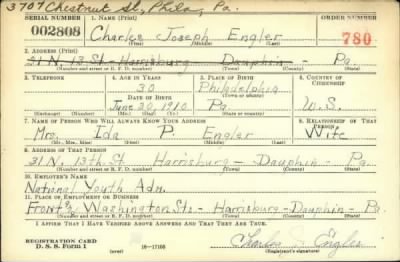 3707 Chestnut St., Phila, Pa.
SERIAL NUMBER 1. NAME (Print) ORDER NUMBER
002808 Charles Joseph Engler 780
(First) (Middle) (Last)
2. ADDRESS (Print)
31 N. 13 St - Harrisburg Dauphin - Pa.
(Number and street or R. F. D. number) (Town) (County) (State)
3. TELEPHONE 4. AGE IN YEARS 5. PLACE OF BIRTH 6. COUNTRY OF CITIZENSHIP
30 Philadelphia
DATE OF BIRTH (Town or county)
June 20, 1910 Pa. U.S.
(Exchange) (Number) (Mo.) (Day) (Yr.) (State or country)
7. NAME OF PERSON WHO WILL ALWAYS KNOW YOUR ADDRESS 8. RELATIONSHIP OF THAT PERSON
Mrs. Ida P. Engler Wife
(Mr., Mrs., Miss) (First) (Middle) (Last)
9. ADDRESS OF THAT PERSON
31 N. 13th St. Harrisburg - Dauphin - Pa.
(Number and street or R. F. D. number) (Town) (County) (State)
10. EMPLOYER'S NAME
National Youth Adm.
11. PLACE OF EMPLOYMENT OR BUSINESS
Front & Washington Sts - Harrisburg - Dauphin - Pa
(Number and street or R. F. D. number) (Town) (County) (State)
I AFFIRM THAT I HAVE VERIFIED ABOVE ANSWERS AND THAT THEY ARE TRUE.
REGISTRATION CARD
D. S. S. Form 1 (over) 16-17105 Charles J. Engler
(Registrant's signature)